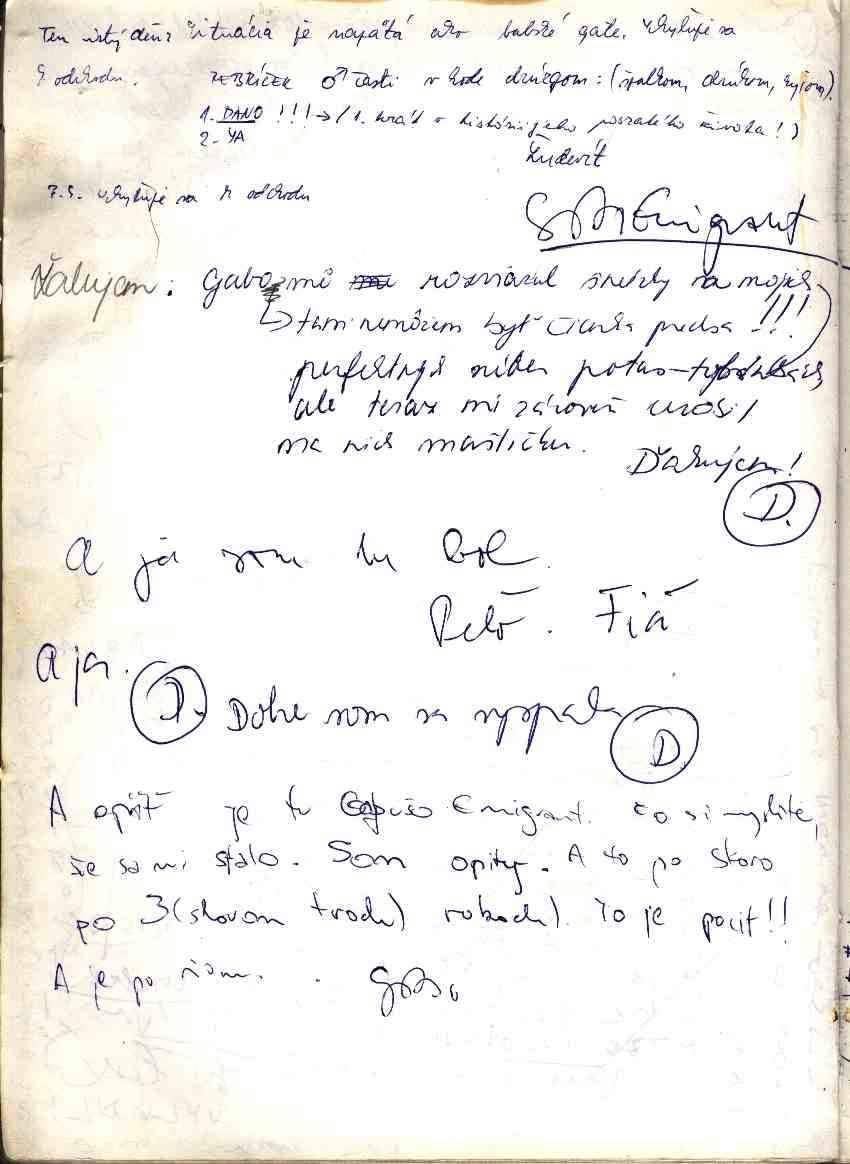 Ten istý deň: Situácia je napätá ako babské gate. Schyľuje sa
k odchodu. REBRÍČEK ♂ časti v hode drúcgom: (špalkom, drúkom, kyjom).
1. DANO !!! → (1. krát v histórii jeho posratého života!)
2. JA
Ľudevít
P.S. schyľuje sa k odchodu
GABO Emigrant
Ďakujem: Gabo mě rozviazal šnúrky na mojich
tam nemôžem byť čiarka predsa !!!
perfektných
ale teraz mi zároveň urobil
na nich mašličku.
Ďakujem!
D.
A já som tu bol.
Peťo. Fiă
A ja.
D. Dobre som sa vyspala
D.
A opäť je tu Gapušo Emigrant. Čo si myslíte,
že sa mi stalo. Som opitý. A to po skoro
po 3 (slovom troch) rokoch). To je pocit!!
A je po ňom. . Gabo